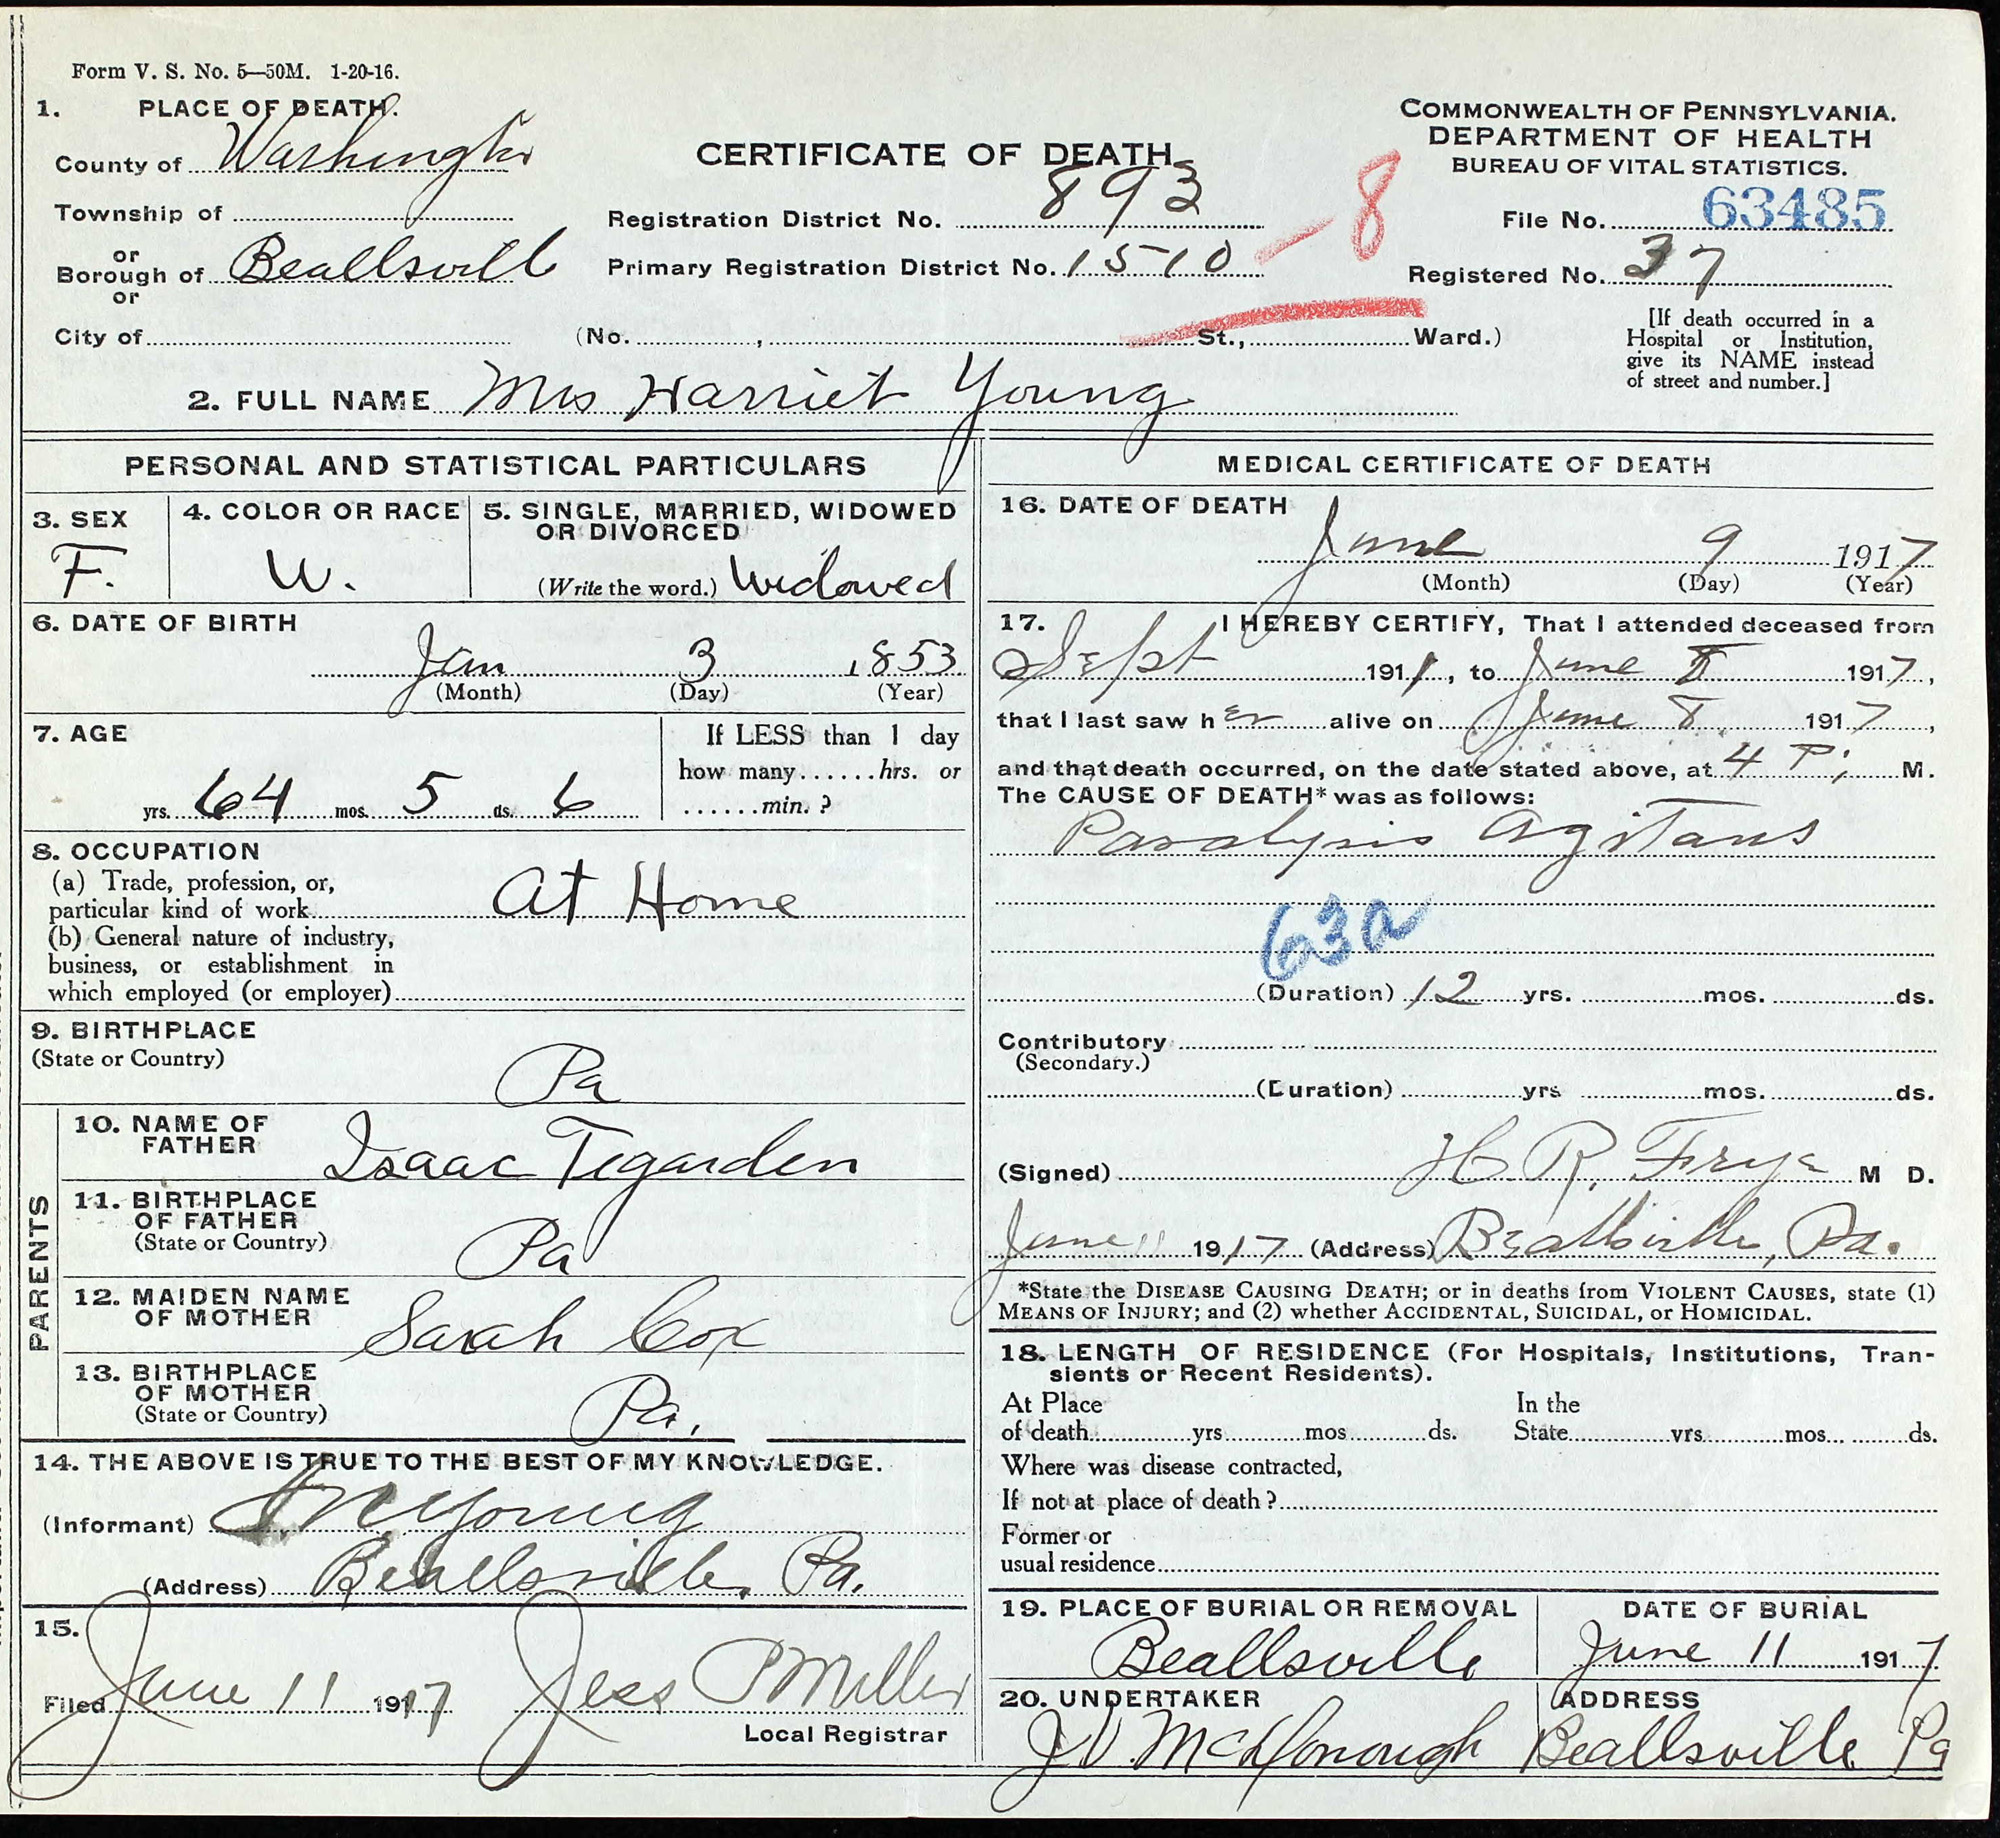 Form V. S. No. 5—50M. 1-20-16.
1. PLACE OF DEATH.
County of Washington
Township of
or
Borough of Beallsville
or
City of
CERTIFICATE OF DEATH
Registration District No. 893
Primary Registration District No. 1510 - 8
(No. , St., Ward.)
COMMONWEALTH OF PENNSYLVANIA.
DEPARTMENT OF HEALTH
BUREAU OF VITAL STATISTICS.
File No. 63485
Registered No. 37
[If death occurred in a
Hospital or Institution,
give its NAME instead
of street and number.]
2. FULL NAME Mrs Harriet Young
PERSONAL AND STATISTICAL PARTICULARS
3. SEX
F.
4. COLOR OR RACE
W.
5. SINGLE, MARRIED, WIDOWED
OR DIVORCED
(Write the word.) Widowed
6. DATE OF BIRTH
Jan 3 1853
(Month) (Day) (Year)
7. AGE
yrs. 64 mos. 5 ds. 6
If LESS than 1 day
how many......hrs. or
......min. ?
8. OCCUPATION
(a) Trade, profession, or,
particular kind of work At Home
(b) General nature of industry,
business, or establishment in
which employed (or employer)
9. BIRTHPLACE
(State or Country)
Pa
PARENTS
10. NAME OF
FATHER Isaac Tegarden
11. BIRTHPLACE
OF FATHER
(State or Country) Pa
12. MAIDEN NAME
OF MOTHER Sarah Cox
13. BIRTHPLACE
OF MOTHER
(State or Country) Pa.
14. THE ABOVE IS TRUE TO THE BEST OF MY KNOWLEDGE.
(Informant) Young
(Address) Beallsville, Pa.
15.
Filed June 11 1917 Jess P Miller
Local Registrar
MEDICAL CERTIFICATE OF DEATH
16. DATE OF DEATH
June 9 1917
(Month) (Day) (Year)
17. I HEREBY CERTIFY, That I attended deceased from
Sept 1911, to June 8 1917,
that I last saw her alive on June 8 1917,
and that death occurred, on the date stated above, at 4 P. M.
The CAUSE OF DEATH* was as follows:
Paralysis Agitans
63a
(Duration) 12 yrs. mos. ds.
Contributory
(Secondary.)
(Duration) yrs mos. ds.
(Signed) H R. Frye M D.
June 11 1917 (Address) Beallsville, Pa.
*State the DISEASE CAUSING DEATH; or in deaths from VIOLENT CAUSES, state (1)
MEANS OF INJURY; and (2) whether ACCIDENTAL, SUICIDAL, or HOMICIDAL.
18. LENGTH OF RESIDENCE (For Hospitals, Institutions, Tran-
sients or Recent Residents).
At Place In the
of death yrs mos ds. State yrs. mos. ds.
Where was disease contracted,
If not at place of death ?
Former or
usual residence
19. PLACE OF BURIAL OR REMOVAL
Beallsville
DATE OF BURIAL
June 11 1917
20. UNDERTAKER
J V. McDonough
ADDRESS
Beallsville Pa